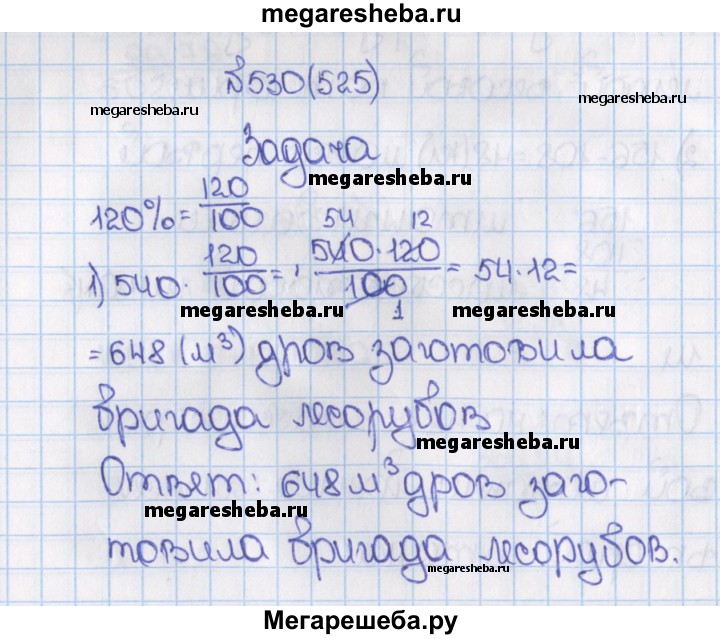 megaresheba.ru
№530(525)
megaresheba.ru
megaresheba.ru
Задача
megaresheba.ru
120% = 120/100
1) 540 · 120/100 = 540·120/100 = 54·12 =
54 12
1
megaresheba.ru
megaresheba.ru
= 648 (м³) дров заготовила
бригада лесорубов
megaresheba.ru
Ответ: 648 м³ дров заго-
megaresheba.ru
товила бригада лесорубов.
megaresheba.ru
Мегарешеба.ру